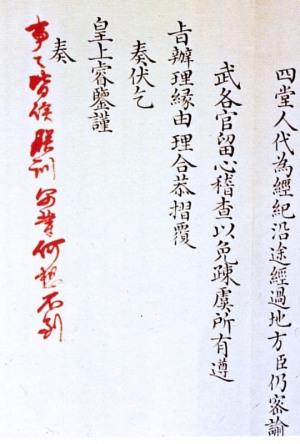 四堂人代為經紀沿途經過地方臣仍密諭
武各官留心稽查以免疎虞所有遵
旨辦理緣由理合恭摺覆
奏伏乞
皇上睿鑒謹
奏
事々皆俟朕訓 何想不到